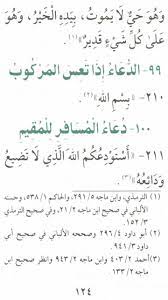 وَهُوَ حَيٌّ لَا يَمُوتُ، بِيَدِهِ الْخَيْرُ، وَهُوَ
عَلَى كُلِّ شَيْءٍ قَدِيرٌ»(١).
٩٩- الدُّعَاءُ إِذَا تَعِسَ المَرْكُوبُ
٢١٠- «بِسْمِ اللَّهِ»(٢).
١٠٠- دُعَاءُ الْمُسَافِرِ لِلْمُقِيمِ
٢١١- «أَسْتَوْدِعُكُمُ اللَّهَ الَّذِي لَا تَضِيعُ
وَدَائِعُهُ»(٣).
(١) الترمذي، وابن ماجه ٢٩١/٥ والحاكم ٥٣٨/١، وحسنه
الألباني في صحيح ابن ماجه ٢١/٢، وفي صحيح الترمذي
١٥٢/٣
(٢) أبو داود ٢٩٦/٤ وصححه الألباني في صحيح أبي
داود ٩٤١/٣
(٣) أحمد ٤٠٣/٢ وابن ماجه ٩٤٣/٢ وانظر صحيح ابن
ماجه ١٣٣/٢
١٢٤